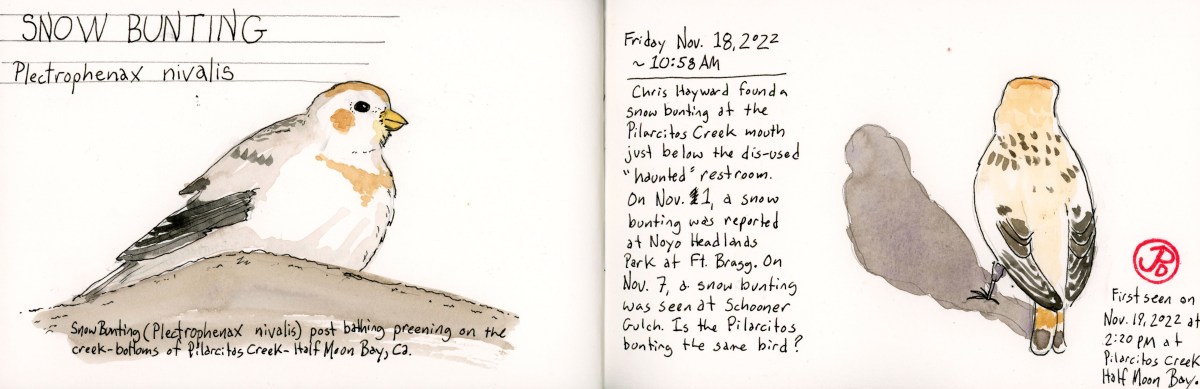 SNOW BUNTING
Plectrophenax nivalis
Snow Bunting (Plectrophenax nivalis) post bathing preening on the
creek-bottoms of Pilarcitos Creek- Half Moon Bay, Ca.
Friday Nov. 18, 2022
~ 10:58 AM
Chris Hayward found a
snow bunting at the
Pilarcitos Creek mouth
just below the dis-used
"haunted" restroom.
On Nov. 1, a snow
bunting was reported
at Noyo Headlands
Park at Ft. Bragg. On
Nov. 7, a snow bunting
was seen at Schooner
Gulch. Is the Pilarcitos
bunting the same bird?
First seen on
Nov. 19, 2022 at
2:20 PM at
Pilarcitos Creek
Half Moon Bay.